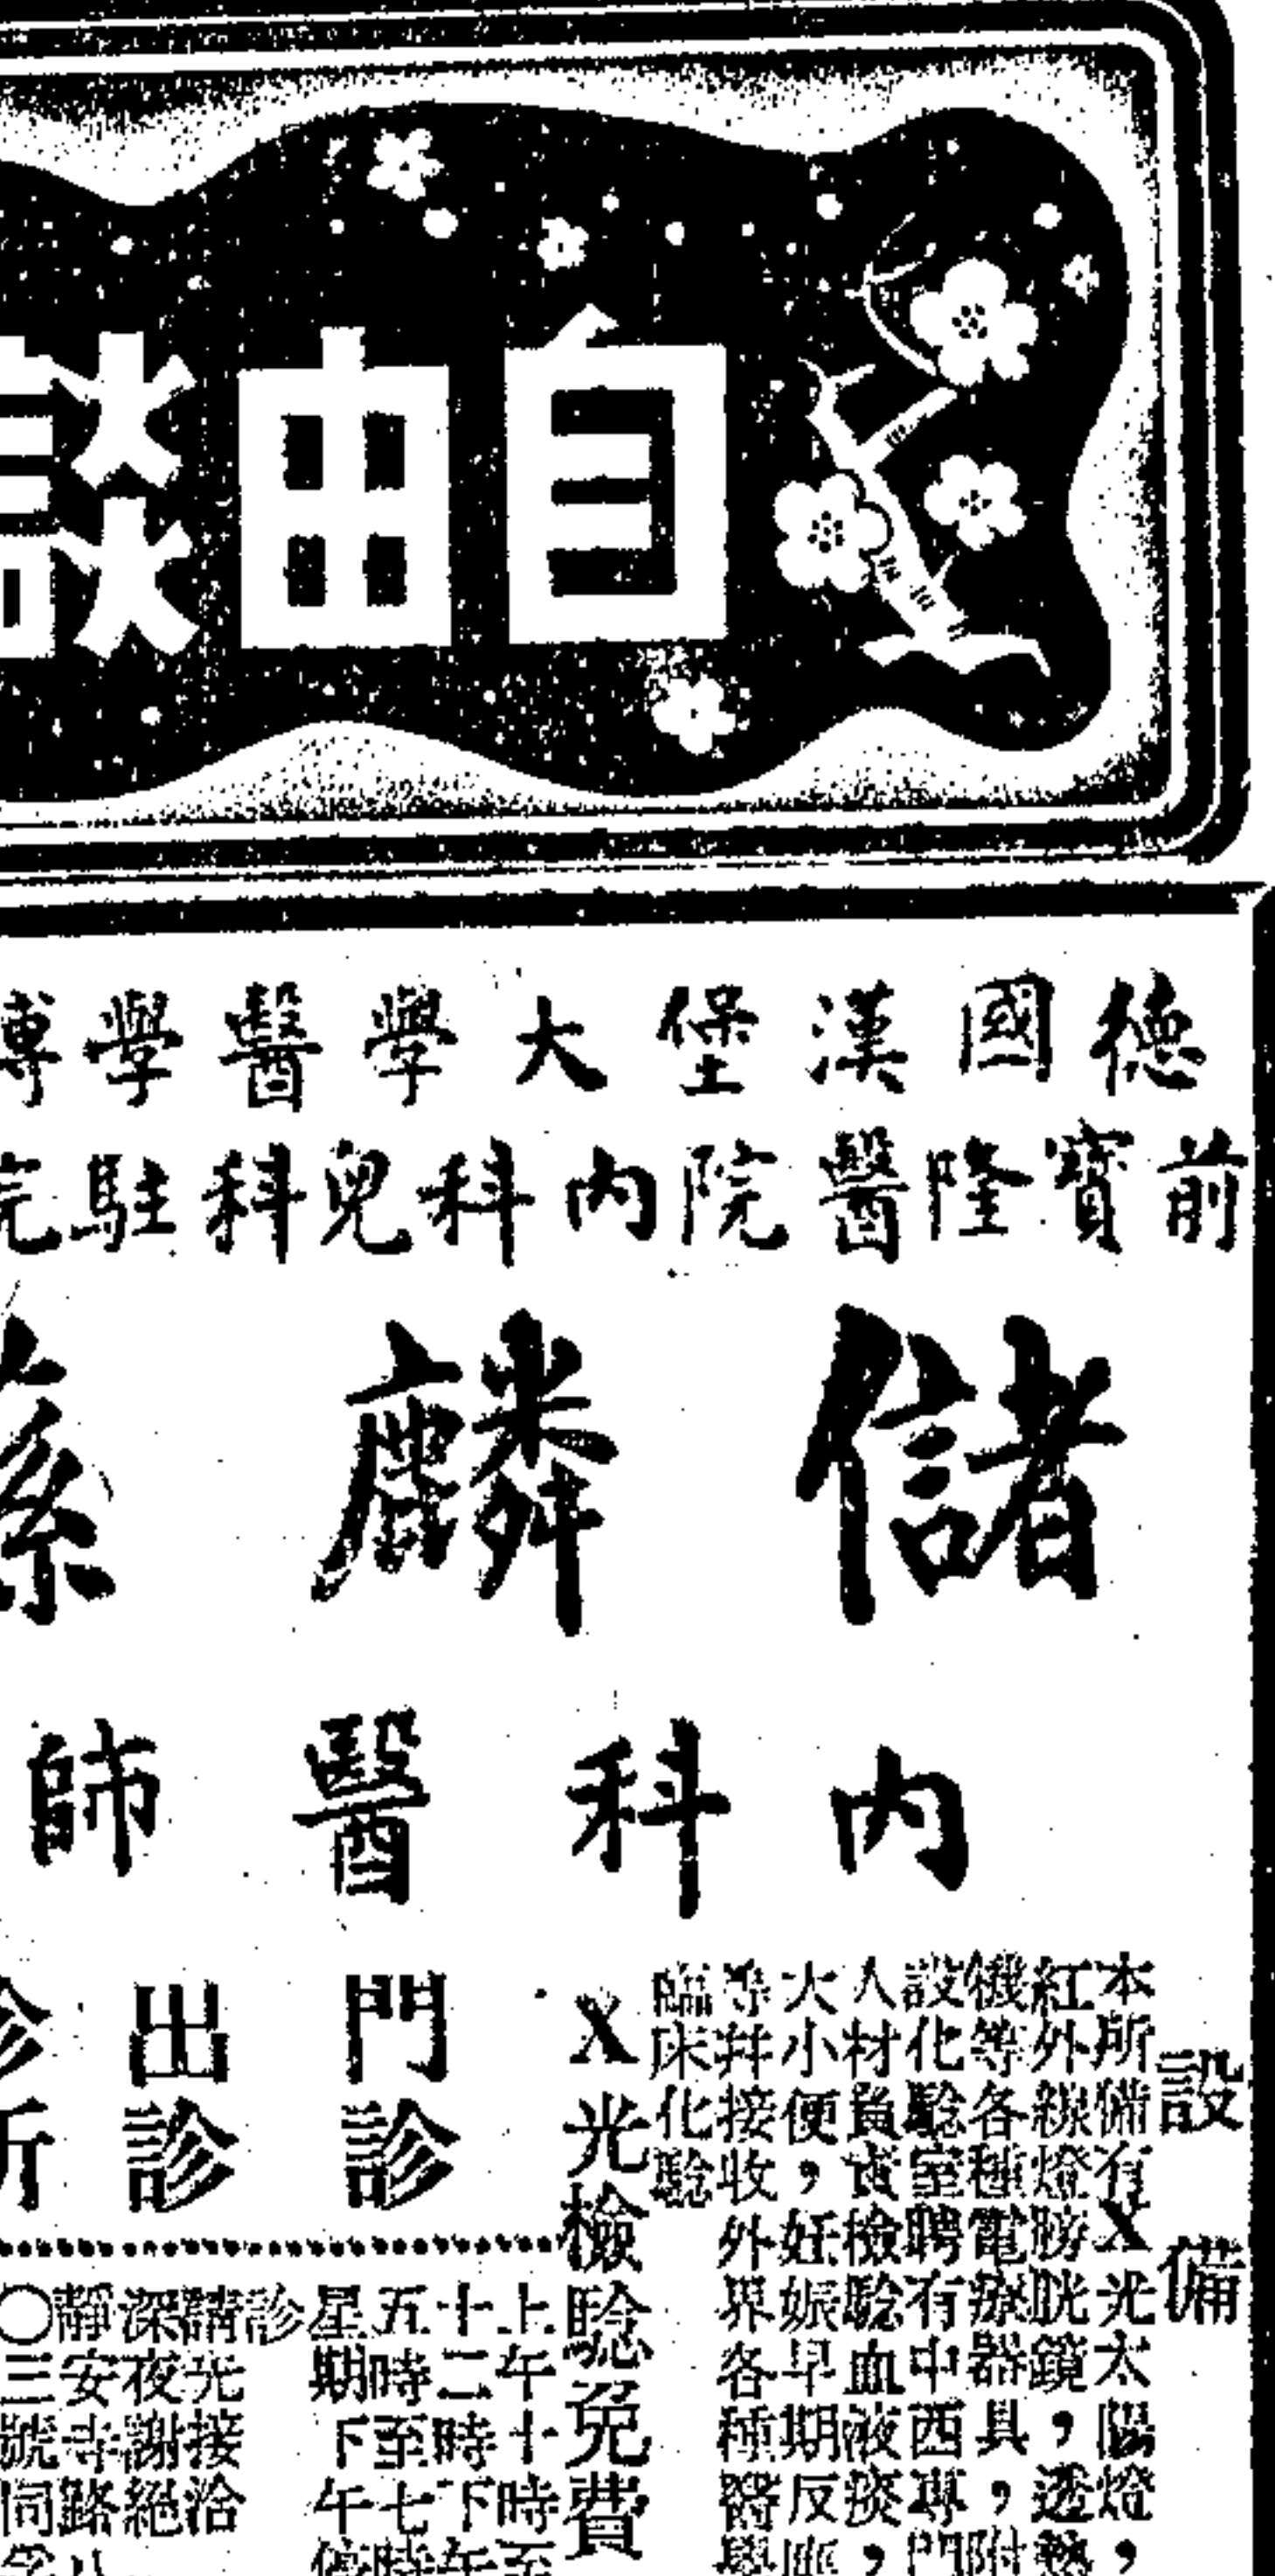 自由談
德國漢堡大學醫學博
前寶隆醫院內科兒科駐院
儲麟蓀
內科醫師
設備
本所備有X光太陽燈，
紅外線燈膀胱鏡，透熱
機等各種電療器具，附
設化驗室聘有中西專門
人材負責檢驗血液痰，
大小便，妊娠早期反應
等并接收外界各種醫學
臨床化驗
X光檢驗免費
門診
上午十時至
十二時下午
五時至七時
星期下午停
診
出診
請先接洽
深夜謝絕
診所
靜安寺路八
〇三號同孚